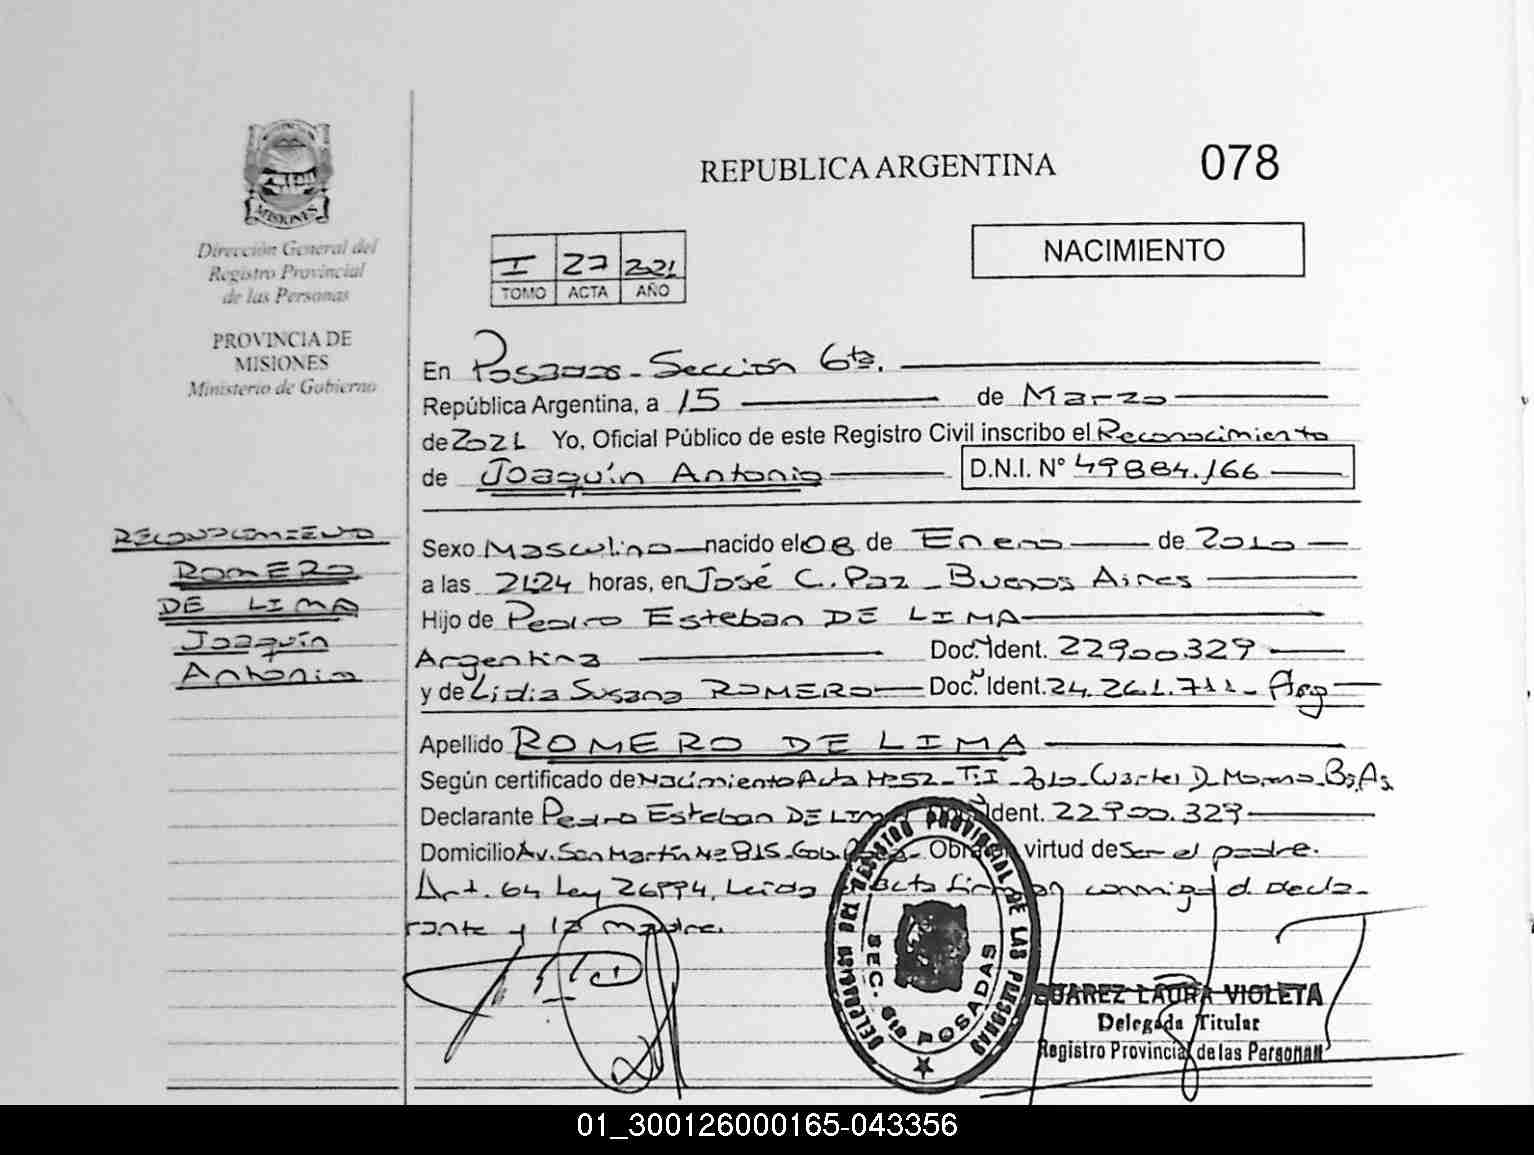 REPUBLICA ARGENTINA 078
MISIONES
Dirección General del
Registro Provincial
de las Personas
PROVINCIA DE
MISIONES
Ministerio de Gobierno
NACIMIENTO
I 27 2021
TOMO ACTA AÑO
En Posadas - Sección 6ta.
República Argentina, a 15 de Marzo
de 2021 Yo, Oficial Público de este Registro Civil inscribo el Reconocimiento
de Joaquín Antonio D.N.I. N° 49884.166
RECONOCIMIENTO
ROMERO
DE LIMA
Joaquín
Antonio
Sexo Masculino nacido el 08 de Enero de 2010
a las 21:24 horas, en José C. Paz - Buenos Aires
Hijo de Pedro Esteban DE LIMA
Argentina Doc. Ident. 22900.329
y de Lidia Susana ROMERO Doc. Ident. 24.261.711 - Arg
Apellido ROMERO DE LIMA
Según certificado de Nacimiento Acta N°52 - T:I - 2010 - Bs. As.
Declarante Pedro Esteban DE LIMA Ident. 22900.329
Domicilio Av. San Martín N° 815 - Gob. Obra virtud de Ser el padre.
Art. 64 Ley 26994. Leída acta firman conmigo el decla-
rante y la madre.
DELEGADA DEL REGISTRO PROVINCIAL DE LAS PERSONAS
SEC. 6ta POSADAS
SUAREZ LAURA VIOLETA
Delegada Titular
Registro Provincial de las Personas
01_300126000165-043356